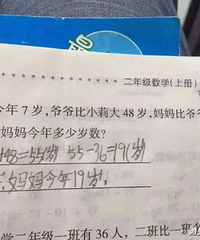 二年级数学(上册)
今年 7 岁,爷爷比小莉大 48 岁,妈妈比爷
妈妈今年多少岁数?
+48=55(岁) 55-36=19(岁)
:妈妈今年19岁。
学二年级一班有 36 人,二班比一班